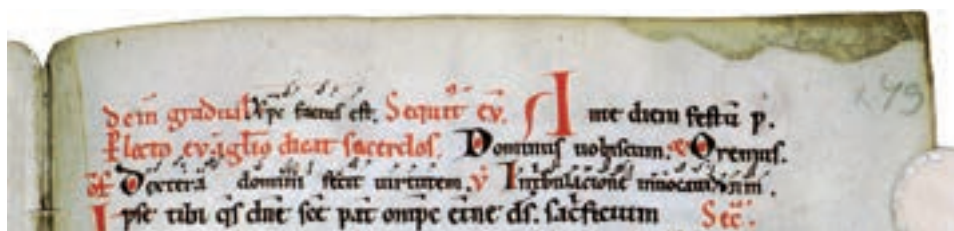 dein̄ gradual Xpc̄ factus est. Sequit̄ ev̄. Ante diem festū p.
Plecto ev̄agl̄io dicat sacerdos. Dominus uobiscum. Oremus.
of̄ Dextera domini fecit uirtutem. v̄ In tribulacione inuocaui dn̄m.
Ipse tibi qs̄ dn̄e sc̄e pat̄ omp̄c et̄ne ds̄. sac̄ficium Sec̄.
249